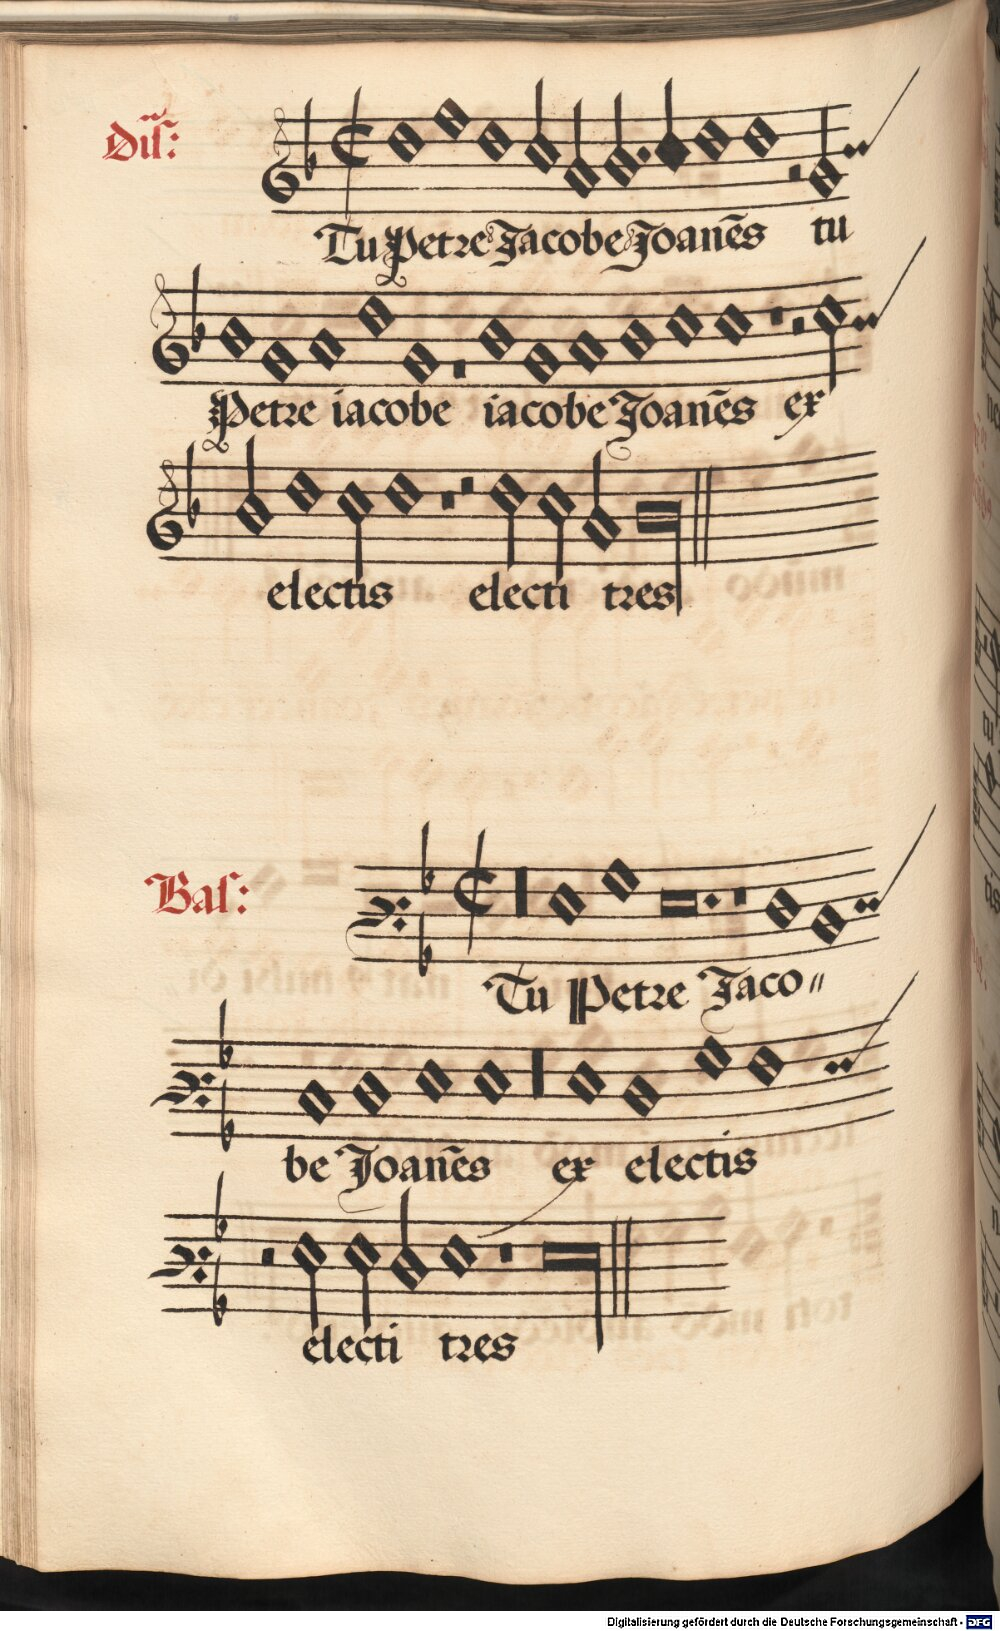 Dis̃:
Tu Petre Jacobe Joanēs tu
Petre iacobe iacobe Joanēs ex
electis electi tres
Bas:
Tu Petre Jaco〃
be Joanēs ex electis
electi tres
Digitalisierung gefördert durch die Deutsche Forschungsgemeinschaft - DFG